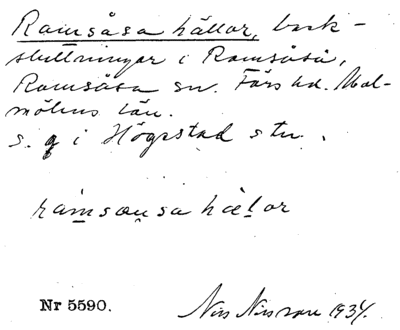 Ramsåsa hällor, back-
sluttningar i Ramsåsa,
Ramsåsa sn. Färs hd. Mal-
möhus län.
s. g i Högestad sn.
ramsausa hælor
Nr 5590.
Nils Nilsson 1934.